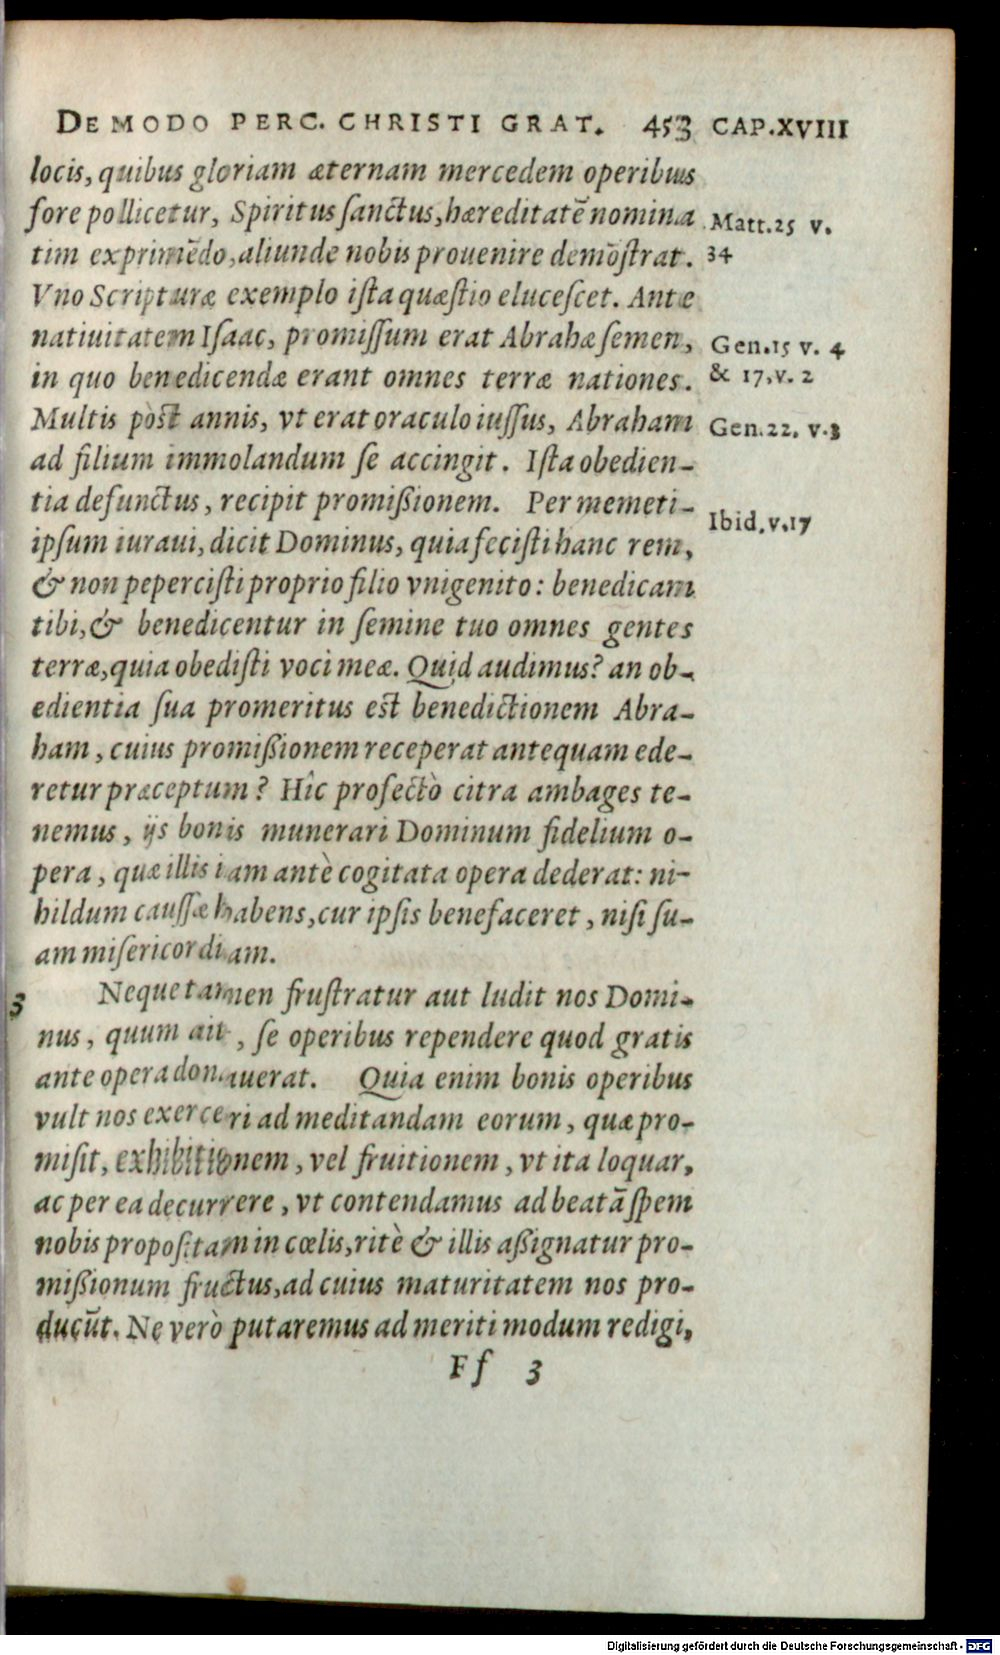 DE MODO PERC. CHRISTI GRAT. 453 CAP.XVIII
locis, quibus gloriam æternam mercedem operibus
fore pollicetur, Spiritus ſanctus, hæreditatē nomina
Matt.25 v.
tim exprimēdo, aliunde nobis prouenire demōſtrat.
34
Vno Scripturæ exemplo iſta quæſtio eluceſcet. Ante
natiuitatem Iſaac, promiſſum erat Abrahæ ſemen,
Gen.15 v. 4
in quo benedicendæ erant omnes terræ nationes.
& 17.v. 2
Multis pòst annis, vt erat oraculo iuſſus, Abraham
Gen.22. v.3
ad filium immolandum ſe accingit. Iſta obedien-
tia defunctus, recipit promißionem. Per memeti-
Ibid.v.17
ipſum iuraui, dicit Dominus, quia feciſti hanc rem,
& non peperciſti proprio filio vnigenito: benedicam
tibi, & benedicentur in ſemine tuo omnes gentes
terræ, quia obediſti voci meæ. Quid audimus? an ob-
edientia ſua promeritus est benedictionem Abra-
ham, cuius promißionem receperat antequam ede-
retur præceptum? Hîc profectò citra ambages te-
nemus, ijs bonis munerari Dominum fidelium o-
pera, quæ illis iam antè cogitata opera dederat: ni-
hildum cauſſæ habens, cur ipſis benefaceret, niſi ſu-
am miſericordiam.
3 Neque tamen fruſtratur aut ludit nos Domi-
nus, quum ait, ſe operibus rependere quod gratis
ante opera donauerat. Quia enim bonis operibus
vult nos exerceri ad meditandam eorum, quæ pro-
miſit, exhibitionem, vel fruitionem, vt ita loquar,
ac per ea decurrere, vt contendamus ad beatā ſpem
nobis propoſitam in cœlis, ritè & illis aßignatur pro-
mißionum fructus, ad cuius maturitatem nos pro-
ducūt. Ne verò putaremus ad meriti modum redigi,
Ff 3
Digitalisierung gefördert durch die Deutsche Forschungsgemeinschaft - DFG